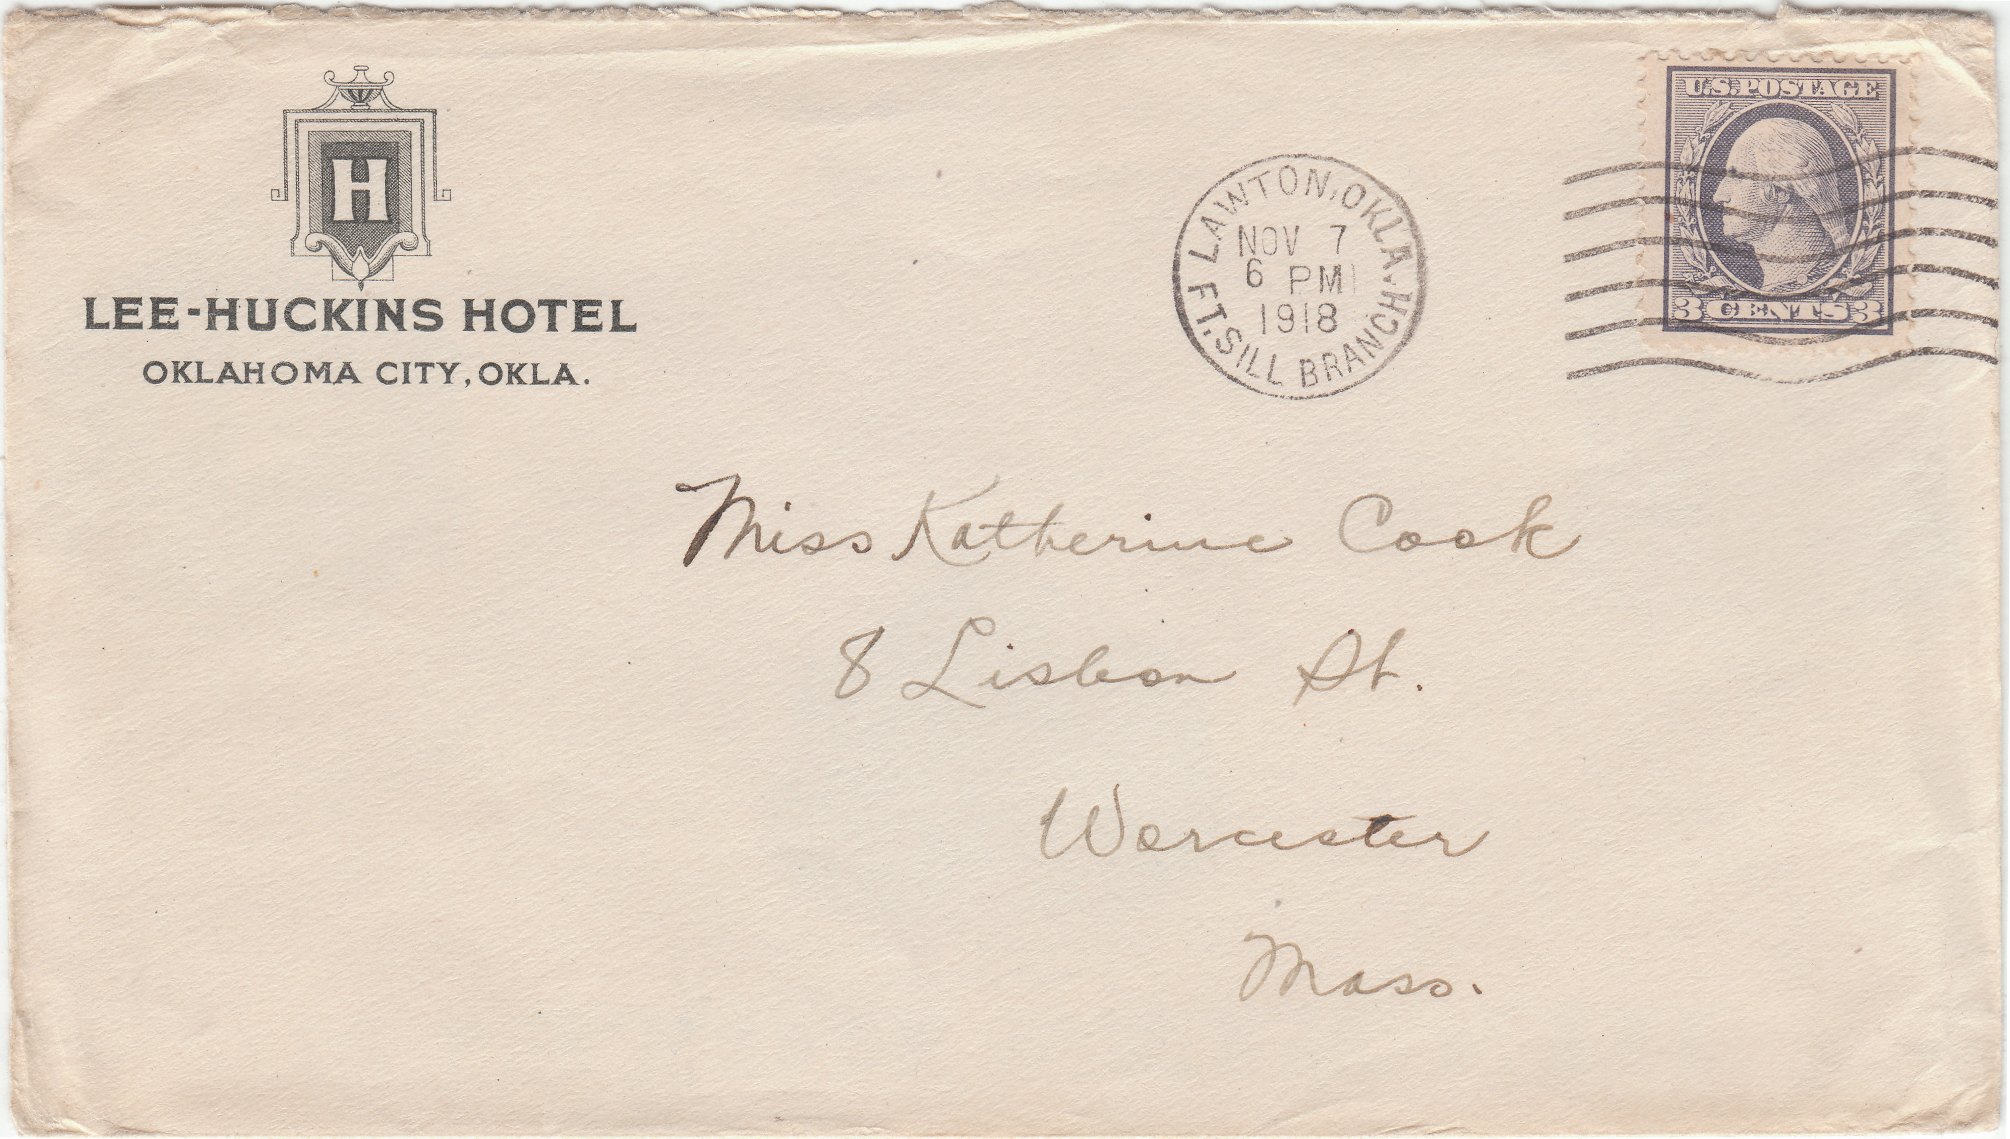 H
LEE-HUCKINS HOTEL
OKLAHOMA CITY, OKLA.
LAWTON, OKLA.
NOV 7
6 PM
1918
FT. SILL BRANCH
U.S. POSTAGE
3 CENTS 3
Miss Katherine Cook
8 Lisbon St.
Worcester
Mass.